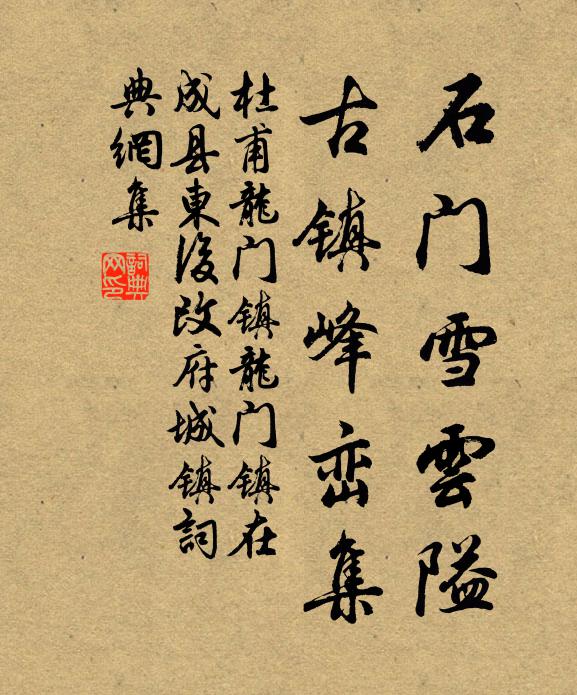 石门雪雲隘
古镇峰峦集
杜甫龍门镇龍门镇在
成县東後改府城镇詞
典網集
詞典
网印